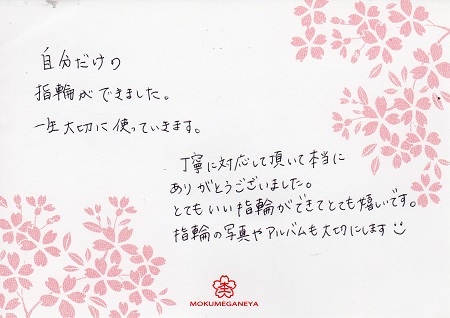 自分だけの
指輪ができました。
一生大切に使っていきます。
丁寧に対応して頂いて本当に
ありがとうございました。
とてもいい指輪ができてとても嬉しいです。
指輪の写真やアルバムも大切にします
杢
MOKUMEGANEYA